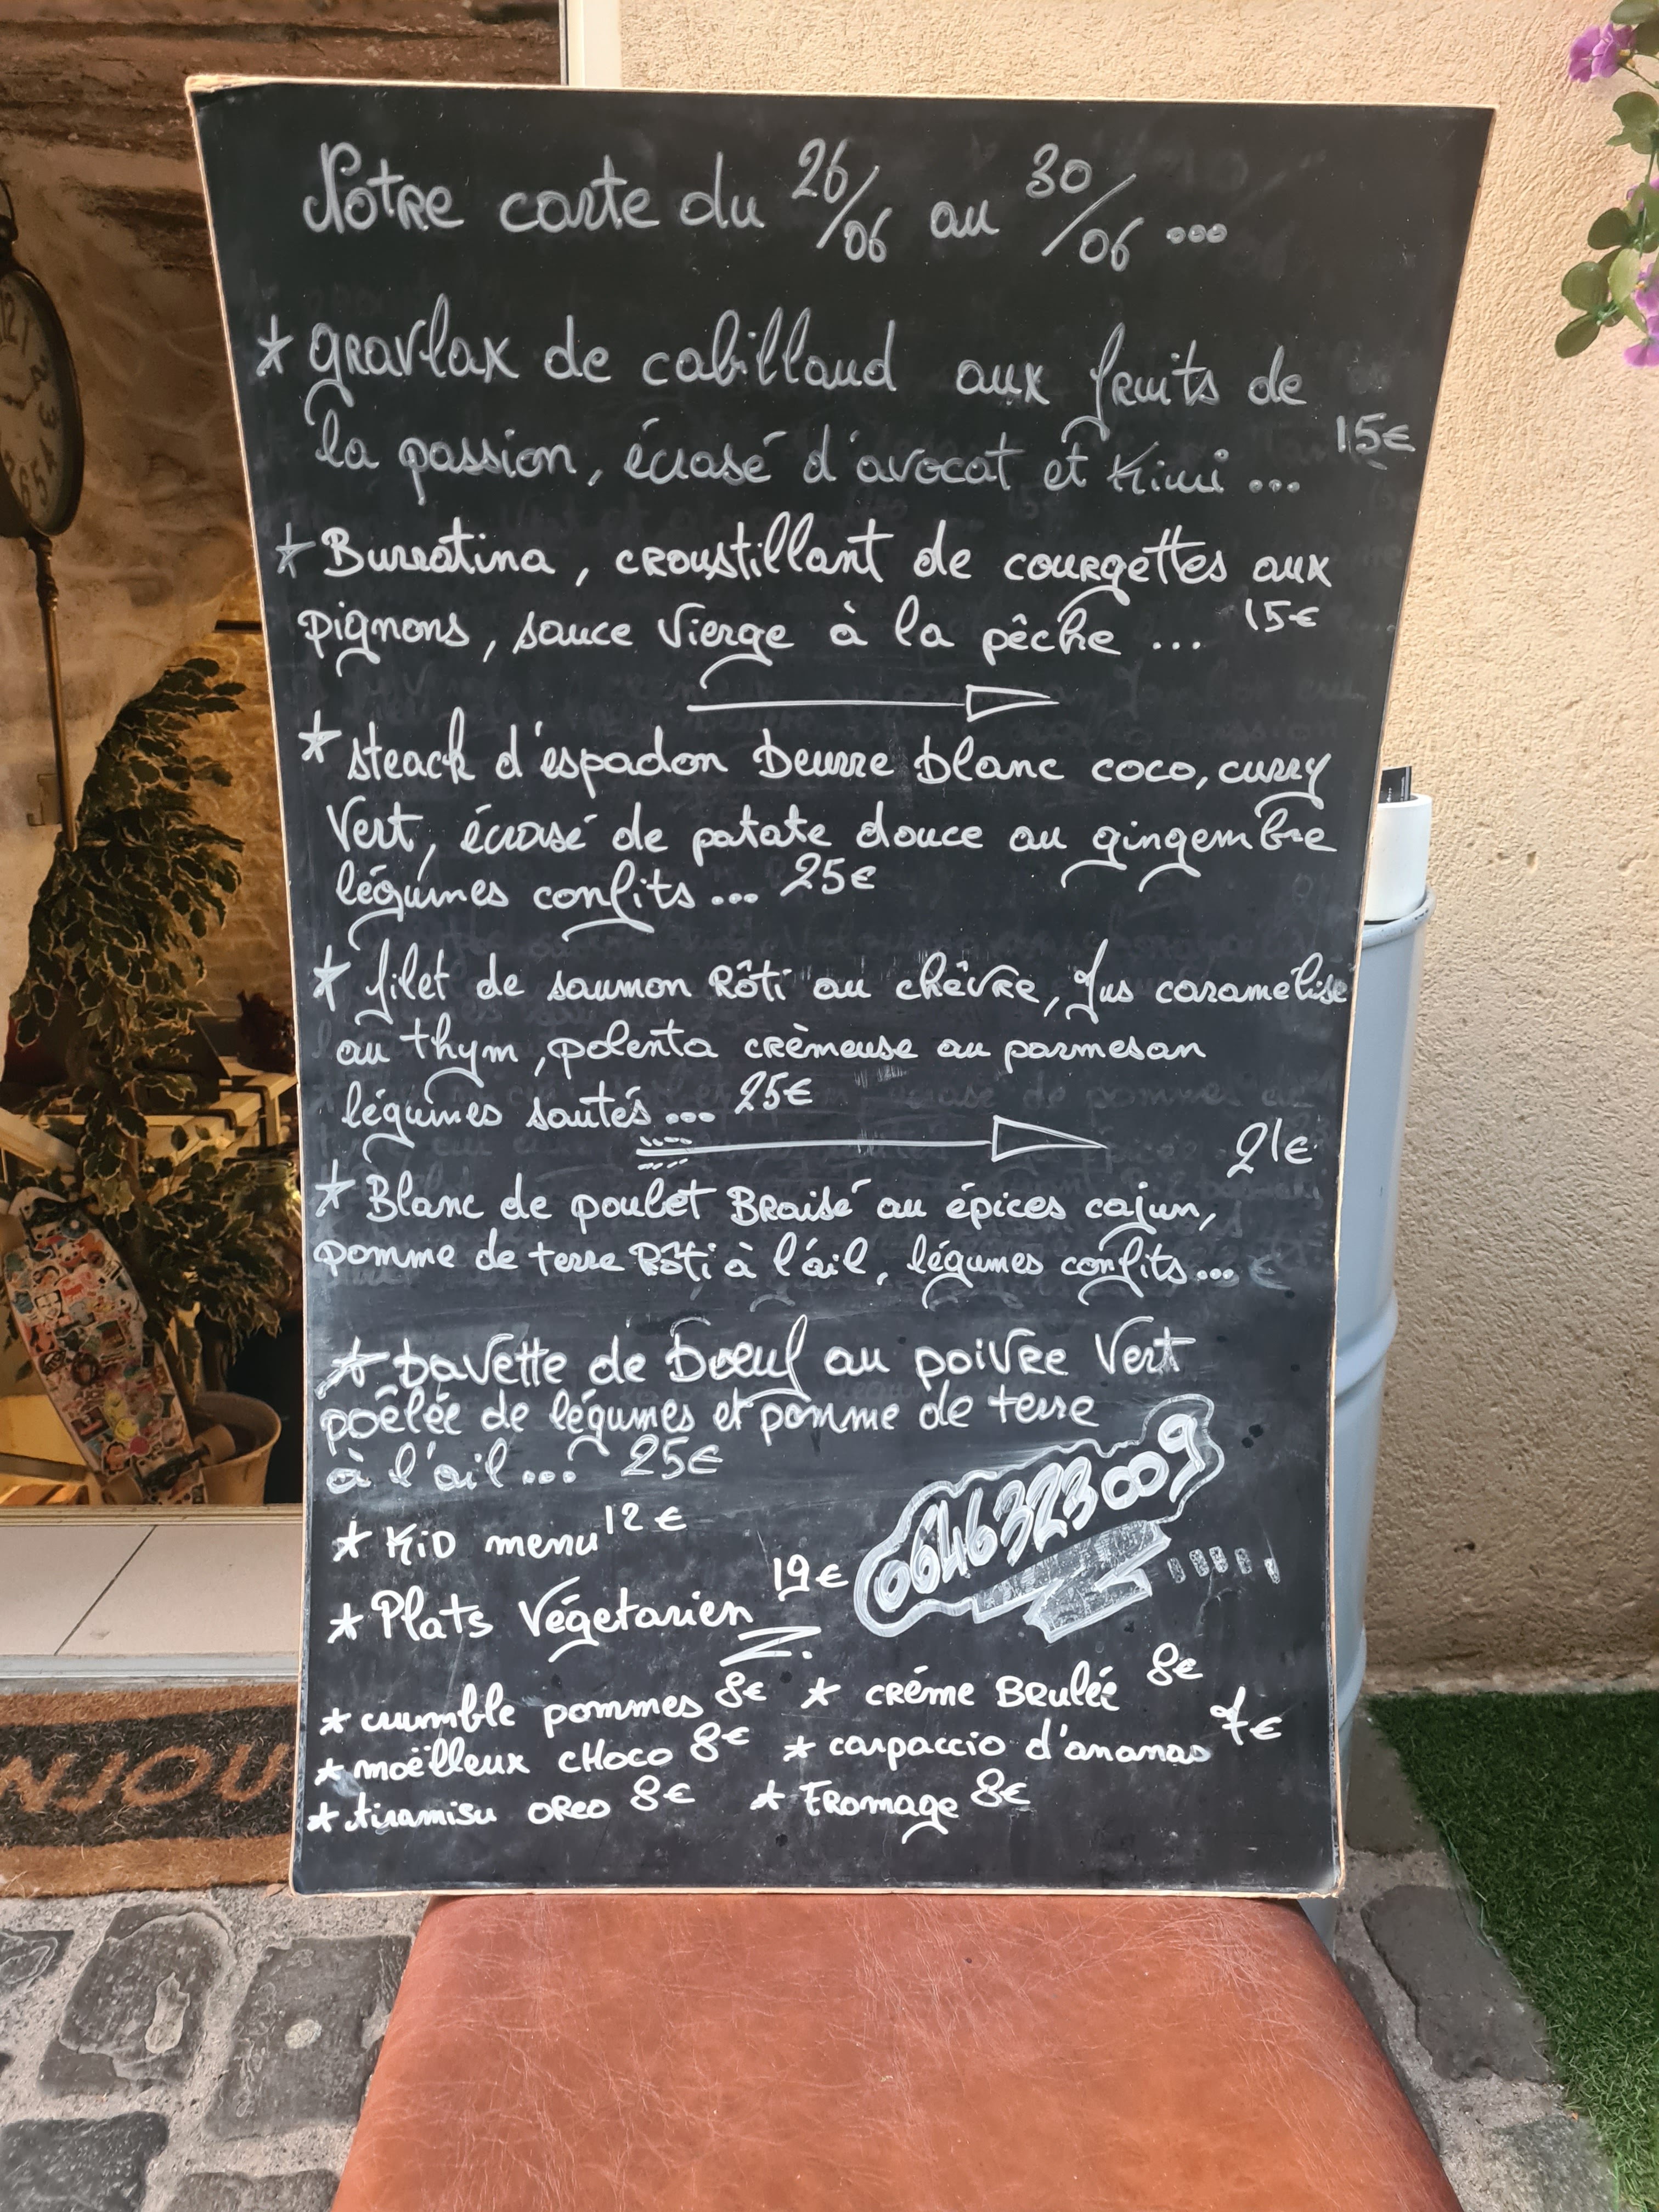 Notre carte du 26/06 au 30/06 ...
* gravlax de cabillaud aux fruits de
la passion, écrasé d'avocat et Kiwi ... 15€
* Burratina, croustillant de courgettes aux
pignons, sauce Vierge à la pêche ... 15€
* steack d'espadon beurre blanc coco, curry
Vert, écrasé de patate douce au gingembre
légumes confits ... 25€
* filet de saumon Rôti au chêvre, Jus caramelisé
au thym, polenta crèmeuse au parmesan
légumes sautés ... 25€
21€
* Blanc de poulet Braisé au épices cajun,
pomme de terre Rôti à l'ail, légumes confits ... €
* bavette de Boeuf au poivre Vert
poêlée de légumes et pomme de terre
à l'ail ... 25€
0646323009
* KiD menu 12€
* Plats Végetarien 19€
* crumble pommes 8€ * créme Brulée 8€
* moëlleux cHoco 8€ * carpaccio d'ananas 7€
* tiramisu oreo 8€ * Fromage 8€
NJOU
12
2
3
4
5
6